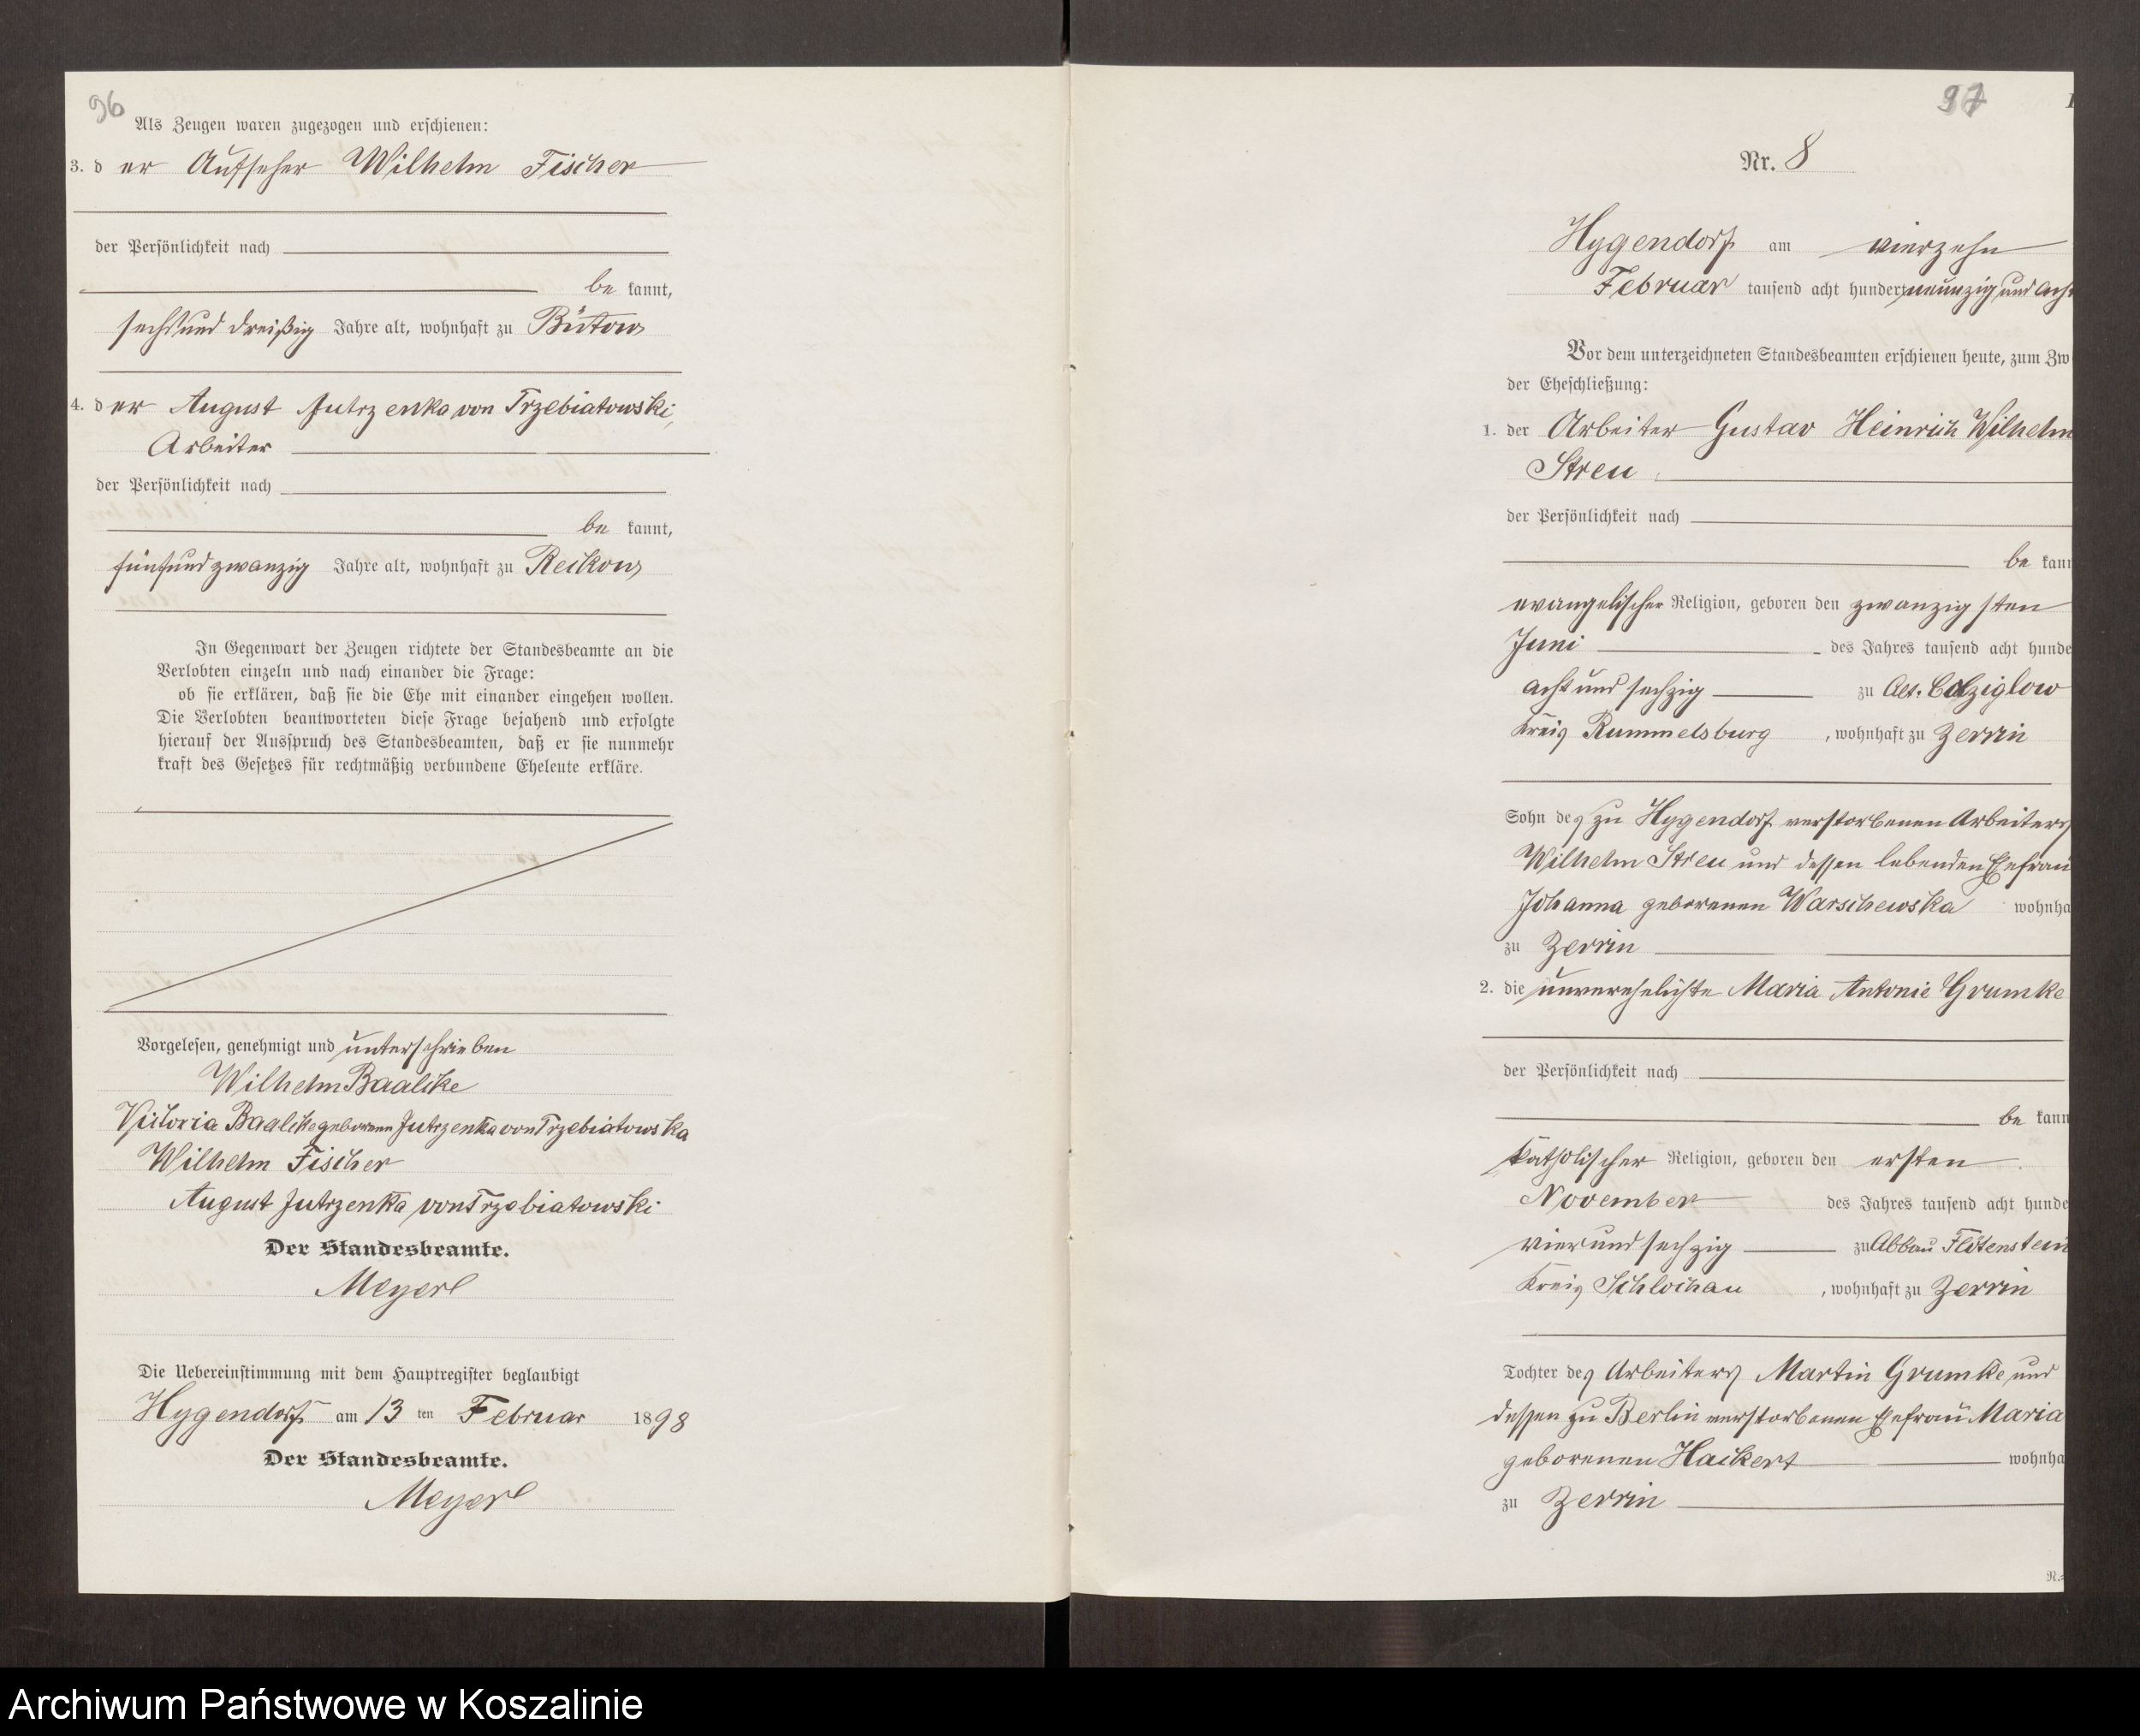 96
Als Zeugen waren zugezogen und erschienen:
3. d er Aufseher Wilhelm Fischer
der Persönlichkeit nach
be kannt,
sechsunddreißig Jahre alt, wohnhaft zu Bütow
4. d er August Jutrzenka von Trzebiatowski,
Arbeiter
der Persönlichkeit nach
be kannt,
fünfundzwanzig Jahre alt, wohnhaft zu Reckow
In Gegenwart der Zeugen richtete der Standesbeamte an die
Verlobten einzeln und nach einander die Frage:
ob sie erklären, daß sie die Ehe mit einander eingehen wollen.
Die Verlobten beantworteten diese Frage bejahend und erfolgte
hierauf der Ausspruch des Standesbeamten, daß er sie nunmehr
kraft des Gesetzes für rechtmäßig verbundene Eheleute erkläre.
Vorgelesen, genehmigt und unterschrieben
Wilhelm Baalcke
Victoria Baalcke geborenen Jutrzenka von Trzebiatowska
Wilhelm Fischer
August Jutrzenka von Trzebiatowski
Der Standesbeamte.
Meyerl
Die Uebereinstimmung mit dem Hauptregister beglaubigt
Hygendorf am 13 ten Februar 1898
Der Standesbeamte.
Meyerl
97
Nr. 8
Hygendorf am vierzehn
Februar tausend acht hundert neunzig und acht
Vor dem unterzeichneten Standesbeamten erschienen heute, zum Zw
der Eheschließung:
1. der Arbeiter Gustav Heinrich Wilhelm
Streu
der Persönlichkeit nach
be kann
evangelischer Religion, geboren den zwanzigsten
Juni des Jahres tausend acht hunde
acht und sechzig zu Alt. Colziglow
Kreis Rummelsburg, wohnhaft zu Zerrin
Sohn des zu Hygendorf verstorbenen Arbeiters
Wilhelm Streu und dessen lebenden Ehefrau
Johanna geborenen Warschewska wohnha
zu Zerrin
2. die unverehelichte Maria Antonie Grumke
der Persönlichkeit nach
be kann
katholischer Religion, geboren den ersten
November des Jahres tausend acht hunde
vier und sechzig zu Abbau Flötenstein
Kreis Schlochau, wohnhaft zu Zerrin
Tochter des Arbeiters Martin Grumke und
dessen zu Berlin verstorbenen Ehefrau Maria
geborenen Hackert wohnha
zu Zerrin
Archiwum Państwowe w Koszalinie